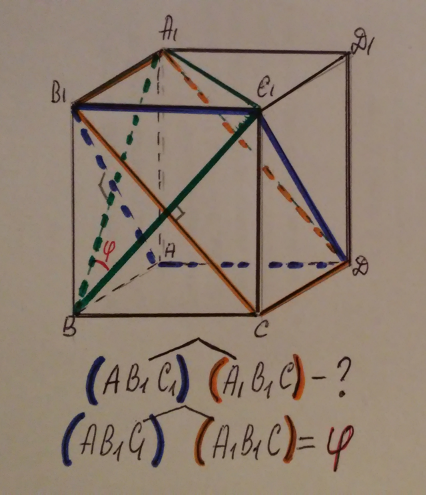 A₁
D₁
B₁
C₁
φ
A
D
B
C
(AB₁C₁) (A₁B₁C) - ?
(AB₁C₁) (A₁B₁C) = φ